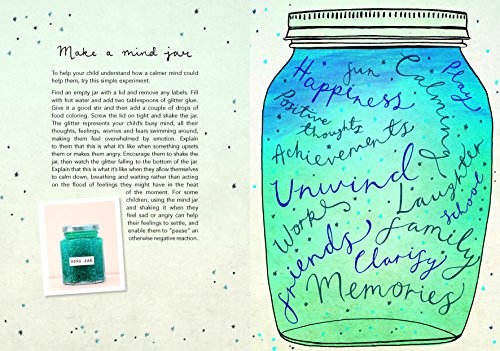 Make a mind jar
To help your child understand how a calmer mind could
help them, try this simple experiment.
Find an empty jar with a lid and remove any labels. Fill
with hot water and add two tablespoons of glitter glue.
Give it a good stir and then add a couple of drops of
food coloring. Screw the lid on tight and shake the jar.
The glitter represents your child's busy mind, all their
thoughts, feelings, worries and fears swimming around,
making them feel overwhelmed by emotion. Explain
to them that this is what it's like when something upsets
them or makes them angry. Encourage them to shake the
jar, then watch the glitter falling to the bottom of the jar.
Explain that this is what it's like when they allow themselves
to calm down, breathing and waiting rather than acting
on the flood of feelings they might have in the heat
of the moment. For some
children, using the mind jar
and shaking it when they
feel sad or angry can help
their feelings to settle, and
enable them to "pause" an
otherwise negative reaction.
MIND JAR
Happiness
fun
Calming
Play
Positive
thoughts
Achievements
Unwind
Laughter
School
Works
Family
friends
Clarity
Memories